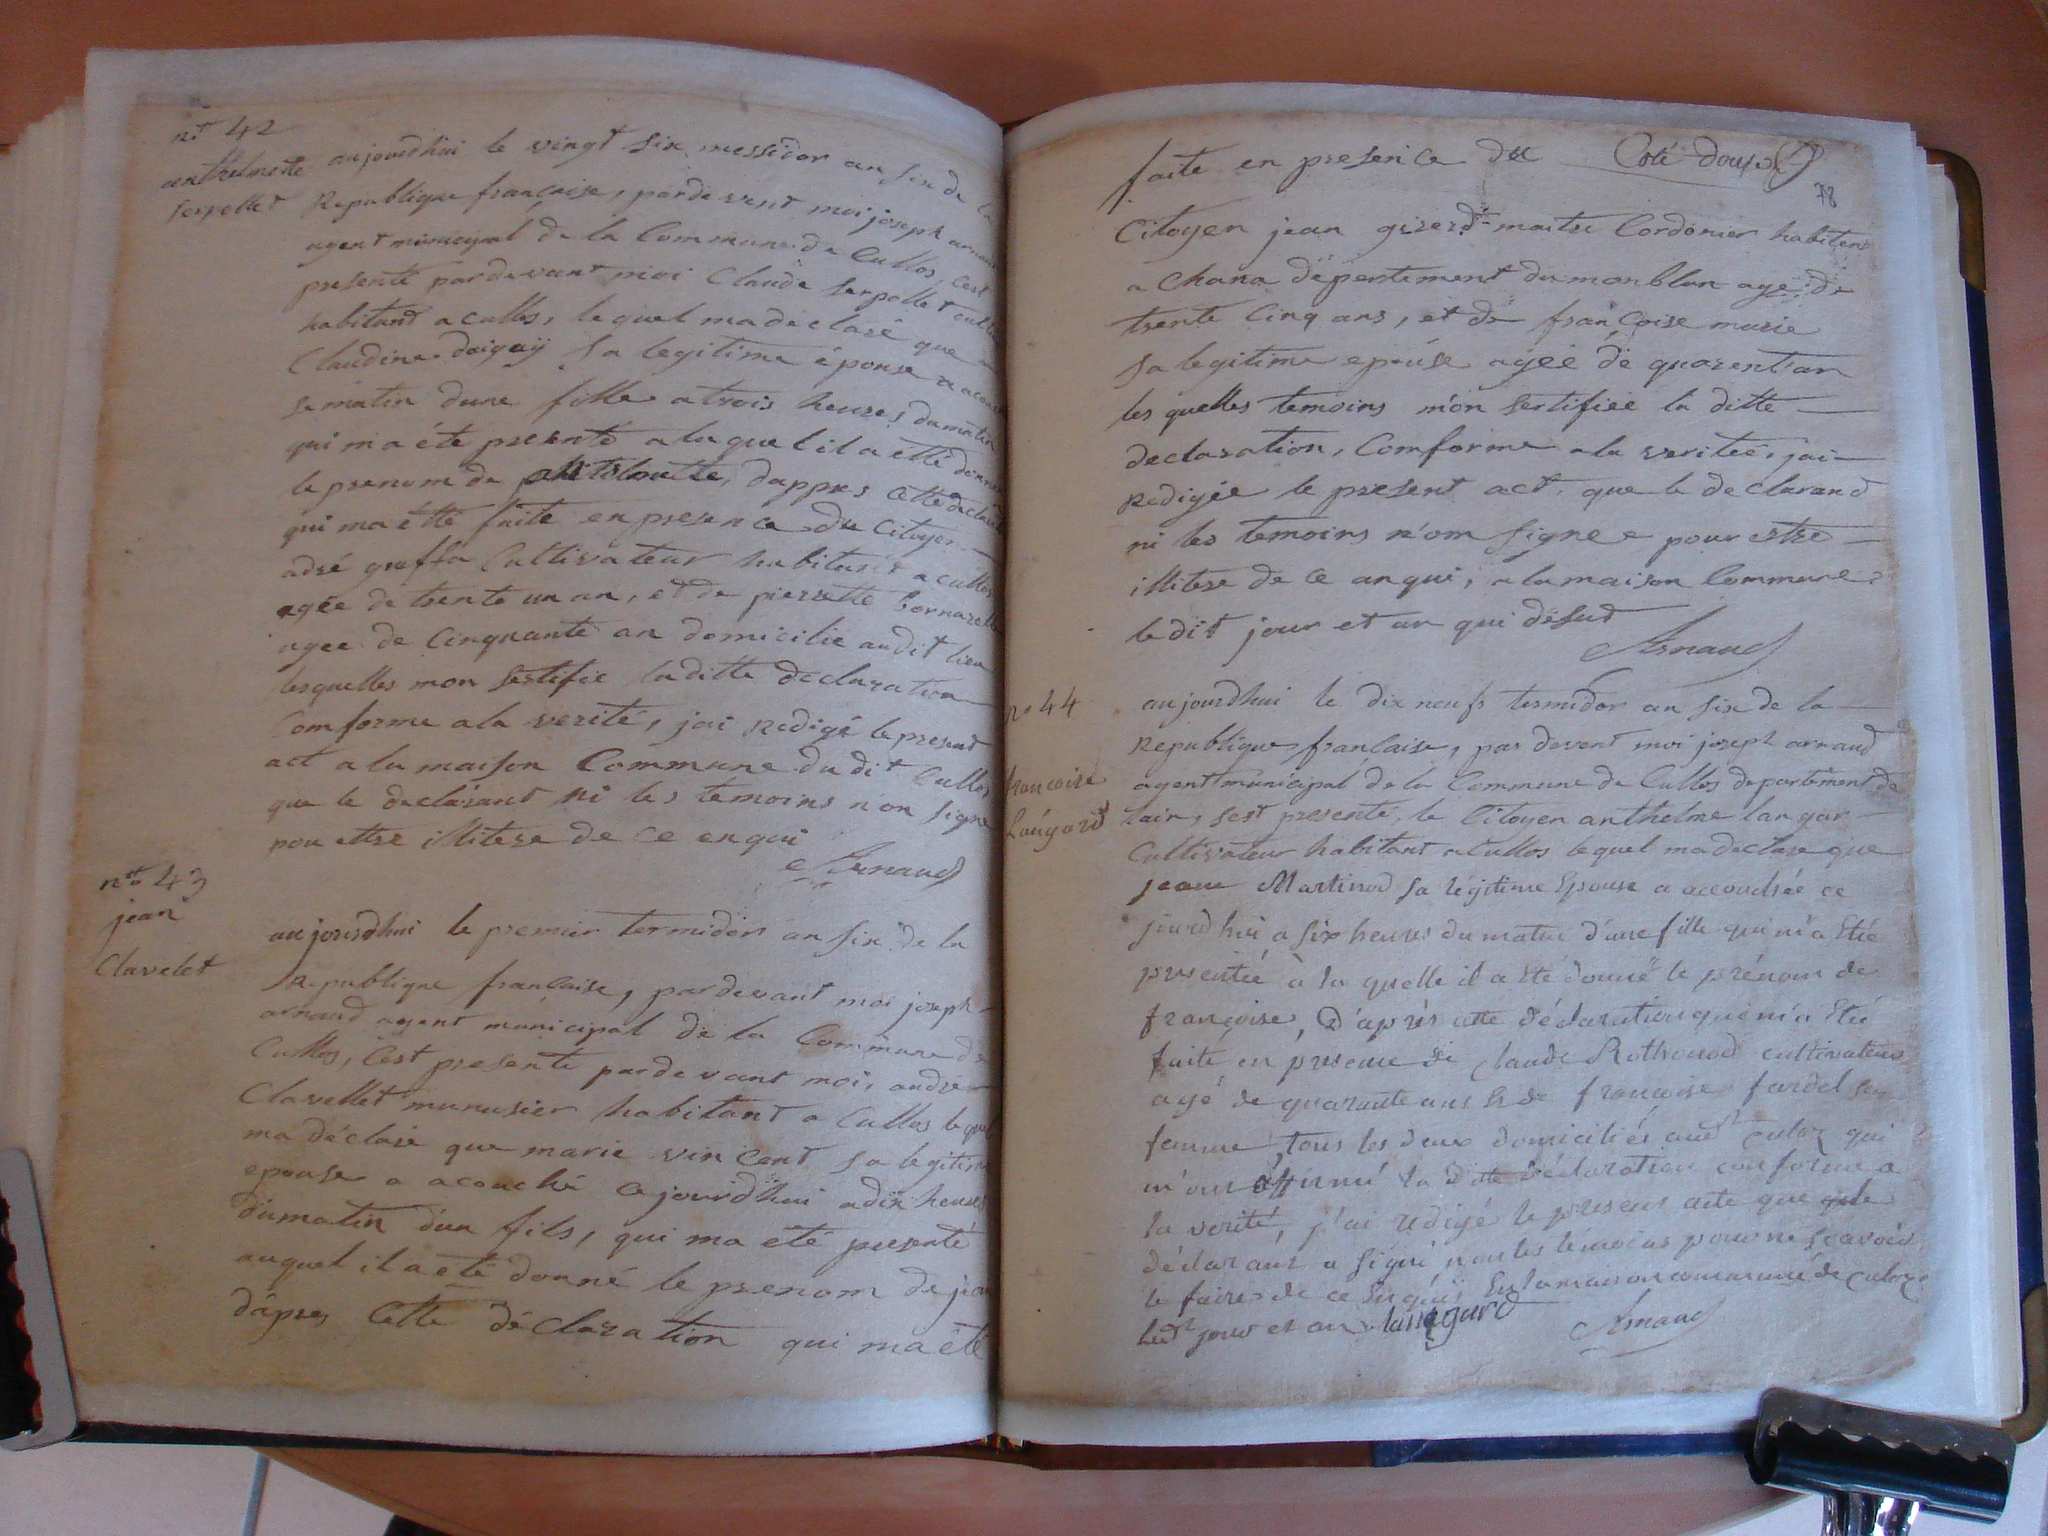 nº 42
anthelmette
Serpollet
aujourdhui le vingt six messidor an six de la
Republique francaise, pardevent moi joseph arnaud
agent municipal de la Commune de Cullos, cest
presenté pardevant moi Claude serpollet
habitant a cullos, lequel ma déclaré que
Claudine sa legitime épouse a acouché
se matin dune fille a trois heures du matin
qui ma éte presenté a la quel il a etté donné
le prenom de dappres cette
qui ma étté faite en presence du Citoyen
Cultivateur habitant a cullos
agée de trente un an, et de pierrette
agee de Cinquante an domicilie audit lieu
lesquelles mon sertifie laditte declaration
Comforme a la verité, jai redigé le present
act a la maison Commune du dit Cullos
que le declarant ni les témoins non signe
pou ettre illitere de ce enqui
Arnaud
nº 43
jean
Clavelet
aujourdhui le premier termidor an six de la
Republique francaise, pardevant moi joseph
arnaud agent municipal de la Commune de
Cullos, Cest presenté pardevant moi,
Clavellet munusier habitant a Cullos lequel
ma déclaré que marie vincent sa legitime
epouse a acouché ce jourdhui a dix heures
dumatin dun fils, qui ma eté presenté
auquel il a eté donné le prenom de jean
dápres Cette déclaration qui ma été
faite en presence du Coté douze
78
Citoyen jean maitre Cordonier habitent
a Chana dépentement du monblan agé de
trente Cinq ans, et de françoise marie
sa legitime epouse agéé de quarent an
les quelles temoins mon sertifiée la ditte
declaration, Comforme a la veritée, jai
redigée le present act, que le declarand
ni les temoins n'om signee pour ettre
illitere de ce anqui, a la maison Commune
le dit jour et an qui désut
Arnaud
nº 44
francoise
Langard
aujourdhui le dix neufs termidor an six de la
Republique francaise, par devent moi joseph arnaud
agent municipal de la Commune de Cullos departement de
lain, sest presenté, le Citoyen anthelme langar
Cultivateur habitant a Cullos lequel ma declare que
jeane Martinod sa légitime Epouse a accouchée ce
jourdhui a six heures du matin d'une fille qui m'a Eté
presentée à la quelle il a été donné le prénom de
françoise, D'après cette déclaration qui m'a Eté
faite en presence de Claude Rothonod cultivateur
agé de quarante ans & de francoise fardel sa
femme, tous les deux domiciliés audt Culoz qui
m'ont affirmé la ditte déclaration conforme a
la verité, j'ai redigé le present acte que le
déclarant a signé non les témoins pour ne scavoir
le faire de ce Enquis En la maison commune de Culoz
Ledt jour et an langard
Arnaud